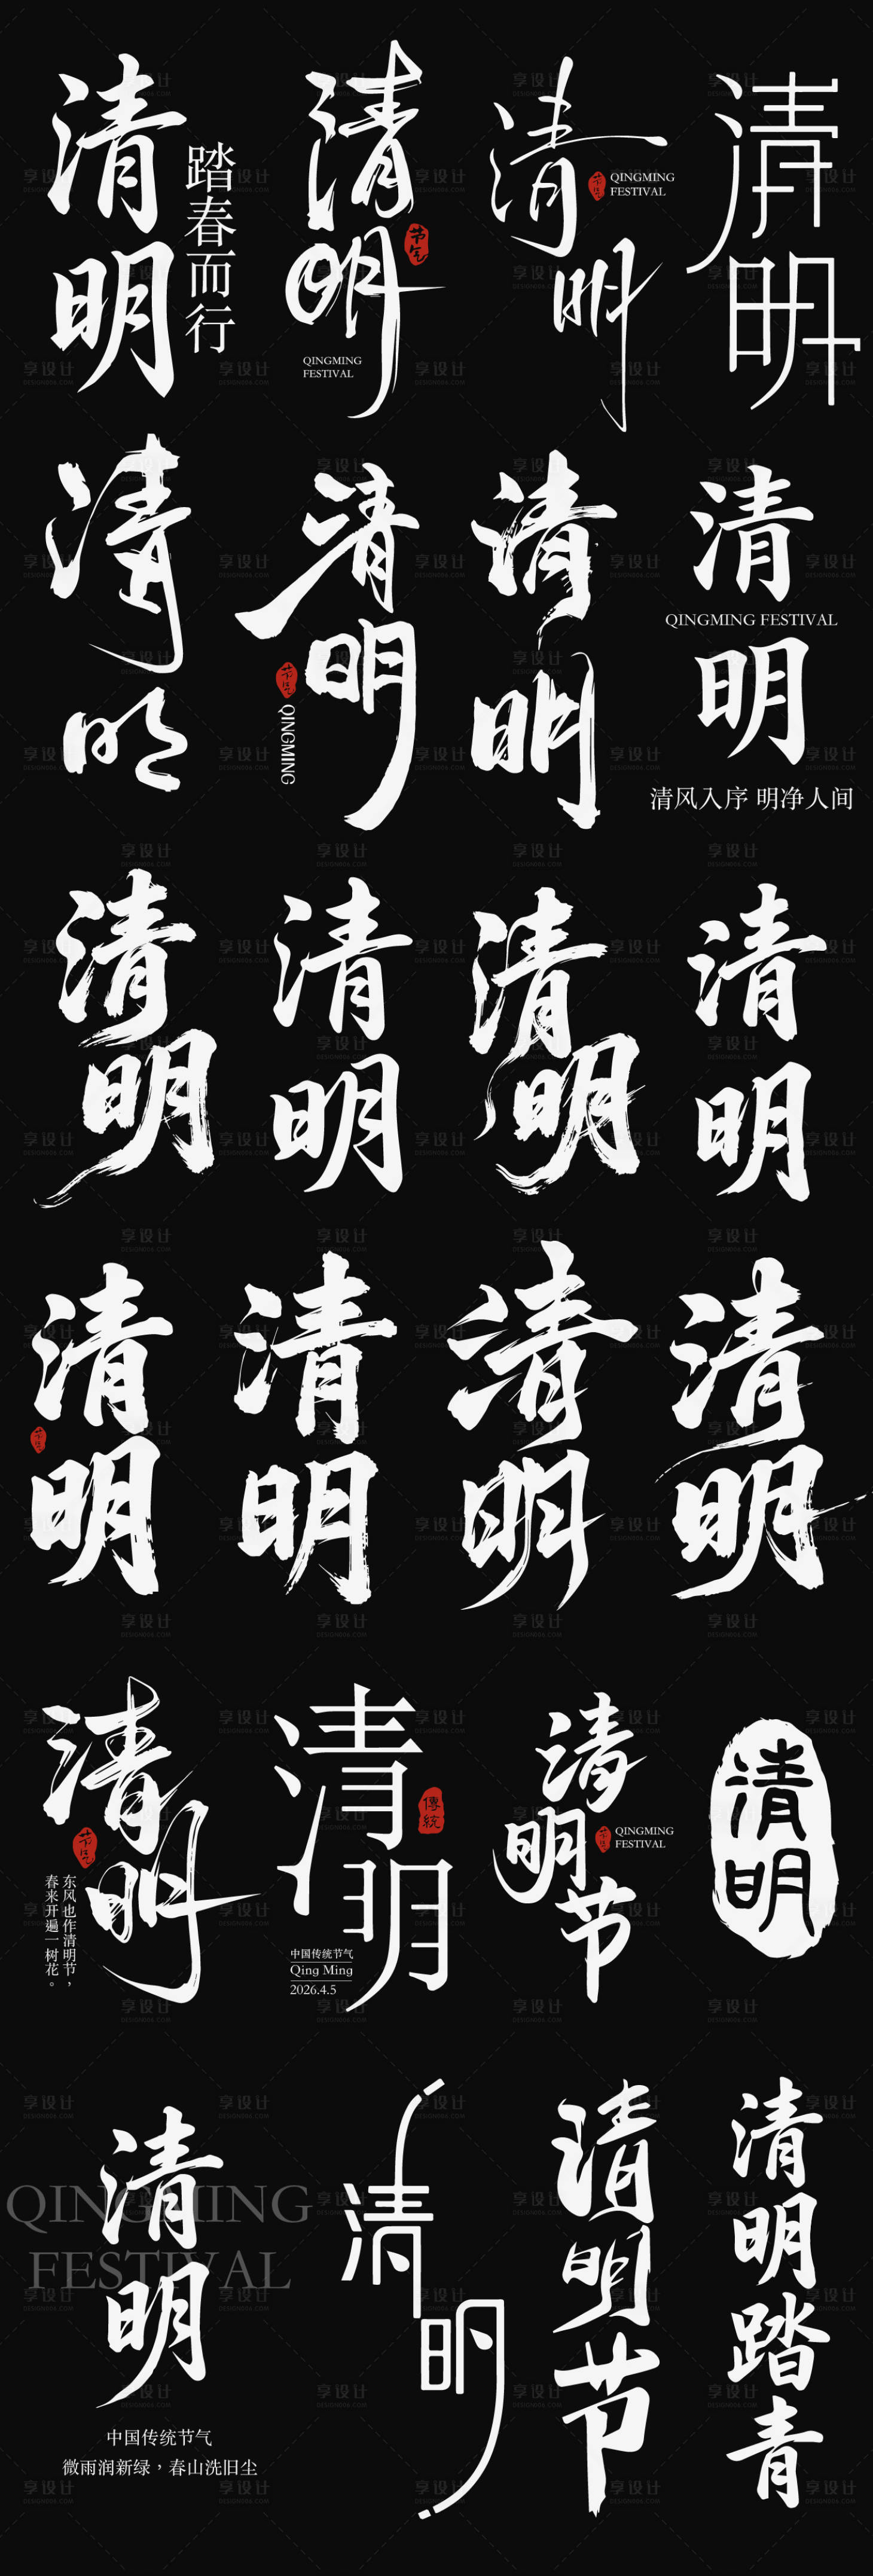 清明
踏春而行
清明
节气
QINGMING
FESTIVAL
清明
节气
QINGMING
FESTIVAL
清明
清明
清明
节气
QINGMING
清明
清明
QINGMING FESTIVAL
清风入序 明净人间
清明
清明
清明
清明
清明
节气
清明
清明
清明
清明
节气
东风也作清明节，
春来开遍一树花。
清明
傳統
中国传统节气
Qing Ming
2026.4.5
清明节
节气
QINGMING
FESTIVAL
清明
清明
QINGMING
FESTIVAL
中国传统节气
微雨润新绿，春山洗旧尘
清明
清明节
清明踏青
享设计
DESIGN006.COM